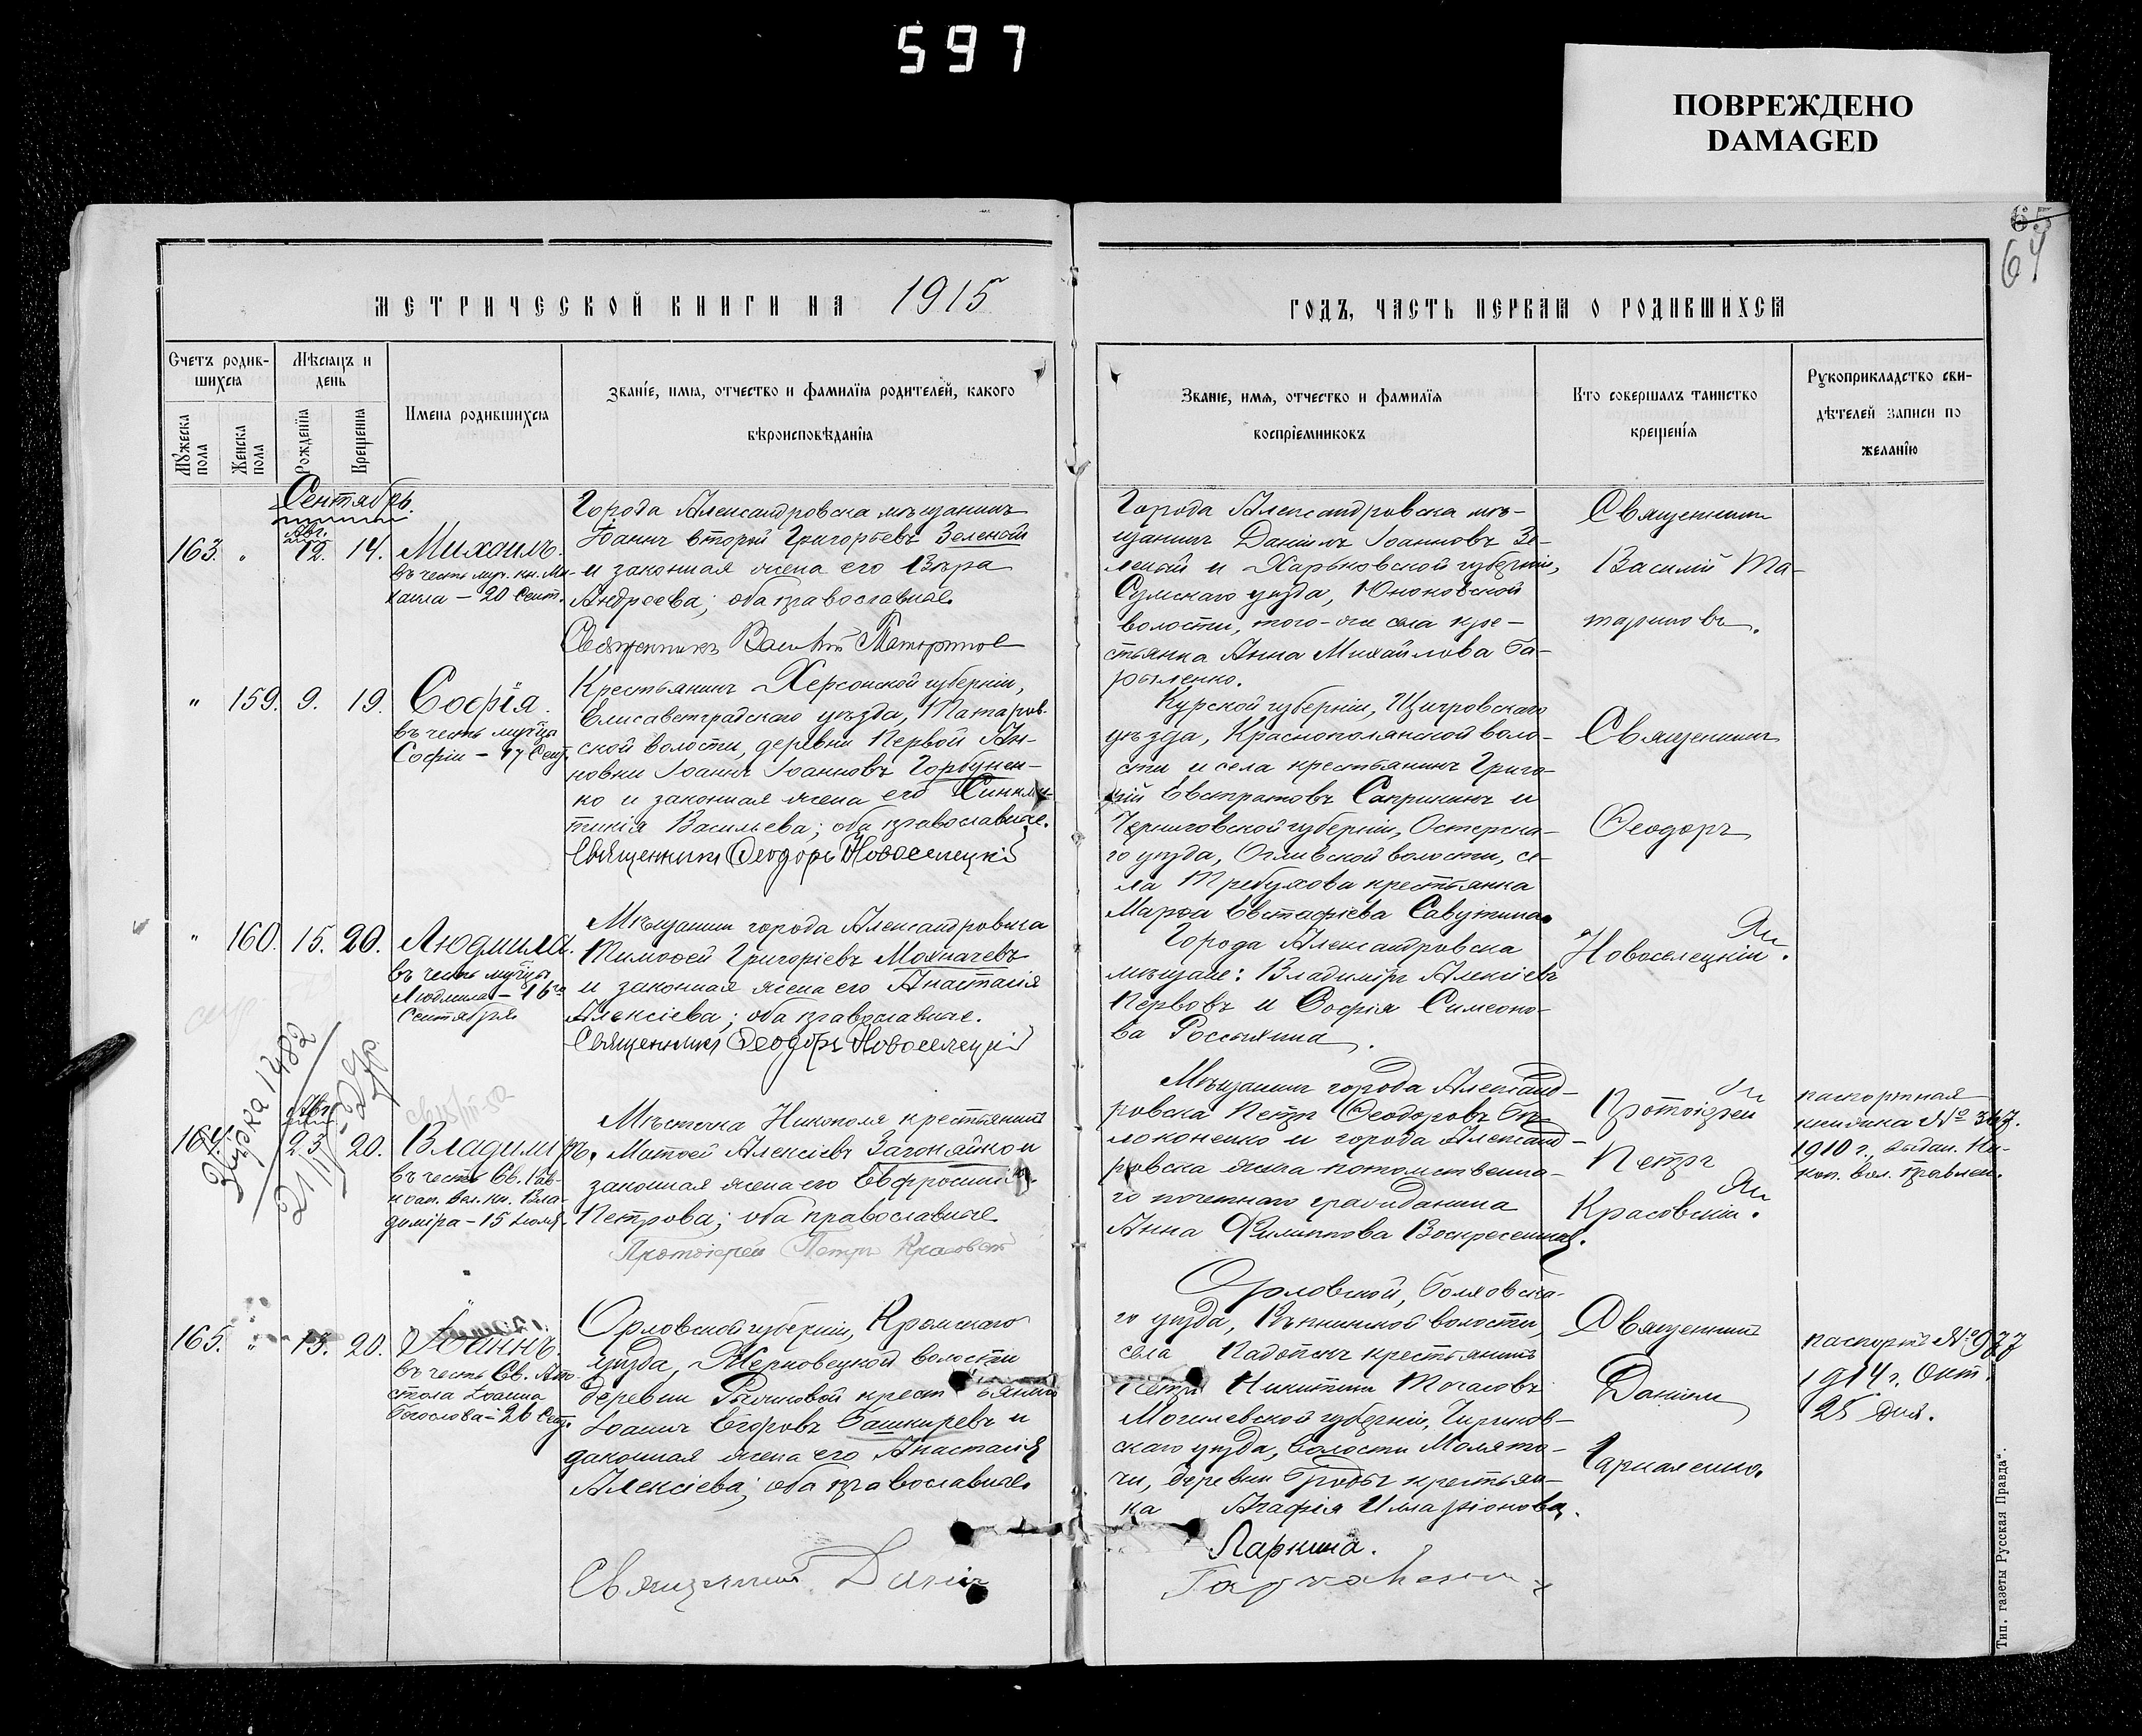 597
ПОВРЕЖДЕНО
DAMAGED
65
64
МЕТРИЧЕСКОЙ КНИГИ НА 1915
ГОДЪ, ЧАСТЬ ПЕРВАЯ О РОДИВШИХСЯ
Счетъ родив-
шихся
Мѣсяцъ и
день
Мужеска
пола
Женска
пола
Рожденія
Крещенія
Имена родившихся
Званіе, имя, отчество и фамилія родителей, какого
вѣроисповѣданія
Званіе, имя, отчество и фамилія
воспріемниковъ
Кто совершалъ таинство
крещенія
Рукоприкладство сви-
дѣтелей записи по
желанію
Сентябрь.
Авг.
163. " 12. 14. Михаилъ.
въ честь муч. кн. Ми-
хаила – 20 Сент.
Города Александровска мѣщанинъ
Іоаннъ второй Григорьевъ Зеленый
и законная жена его Вѣра
Андреева; оба православные.
Священникъ Василій
Города Александровска мѣ-
щанинъ Даніилъ Іоанновъ Зе-
леный и Харьковской губерніи,
Сумскаго уѣзда, Юноковской
волости, того-же села кре-
стьянка Анна Михайлова Ба-
рыленко.
Священникъ
Василій Та-
тариновъ.
" 159. 9. 19. Софія.
въ честь муч-цы
Софіи – 17 Сент.
Крестьянинъ Херсонской губерніи,
Елисаветградскаго уѣзда, Татаров-
ской волости, деревни Первой Ан-
новки Іоаннъ Іоанновъ Горбунен-
ко и законная жена его Синкли-
тикія Васильева; оба православные.
Священникъ Ѳеодоръ Новоселецкій
Курской губерніи, Щигровскаго
уѣзда, Краснополянской воло-
сти и села крестьянинъ Григо-
рій Евстратовъ Саприкинъ и
Черниговской губерніи, Остерска-
го уѣзда, волости, се-
ла Требухова крестьянка
Марѳа Евстафіева Савутина.
Священникъ
Ѳеодоръ
Новоселецкій.
" 160. 15. 20. Людмила.
въ честь муч-цы
Людмилы – 16го
Сентября
Мѣщанинъ города Александровска
Тимоѳей Григоріевъ Мохначевъ
и законная жена его Анастасія
Алексіева; оба православные.
Священникъ Ѳеодоръ Новоселецкій
Города Александровска
мѣщане: Владиміръ Алексіевъ
Первовъ и Софія Симеоно-
ва
1482
Авг.
164. " 23. 20. Владиміръ.
въ честь Св. Рав-
ноап. вел. кн. Вла-
диміра – 15 Іюля.
Мѣстечка Никополя, крестьянинъ
Матѳей Алексіевъ Загоняйко и
законная жена его Евфросинія
Петрова; оба православные
Протоіерей Петръ Красовскій
Мѣщанинъ города Александ-
ровска Петръ Ѳеодоровъ Бѣ-
локоненко и города Александ-
ровска жена потомственна-
го почетнаго гражданина
Анна Филиппова Воскресенская.
Протоіерей
Петръ
Красовскій.
паспортная
книжка № 347.
1910 г., выдан. Ни-
коп. вол. правлен.
165. " 13. 20. Іоаннъ.
въ честь Св. Апо-
стола Іоанна
Богослова – 26 Сент.
Орловской губерніи, Кромскаго
уѣзда, Жерновецкой волости
деревни крестьянинъ
Іоаннъ Егоровъ Башкиревъ и
законная жена его Анастасія
Алексіева; оба православные.
Священникъ Даніилъ
Орловской, Болховска-
го уѣзда, волости,
села крестьянинъ
Петръ Никитинъ
Могилевской губерніи, Чириков-
скаго уѣзда, волости Молято-
чи, деревни крестьян-
ка Агафія Илларіонова
Ларкина.
Гармаленко
Священникъ
Даніилъ
Гармаленко.
паспортъ № 977
1914 г. Окт.
25 дня.
Тип. газеты Русская Правда".